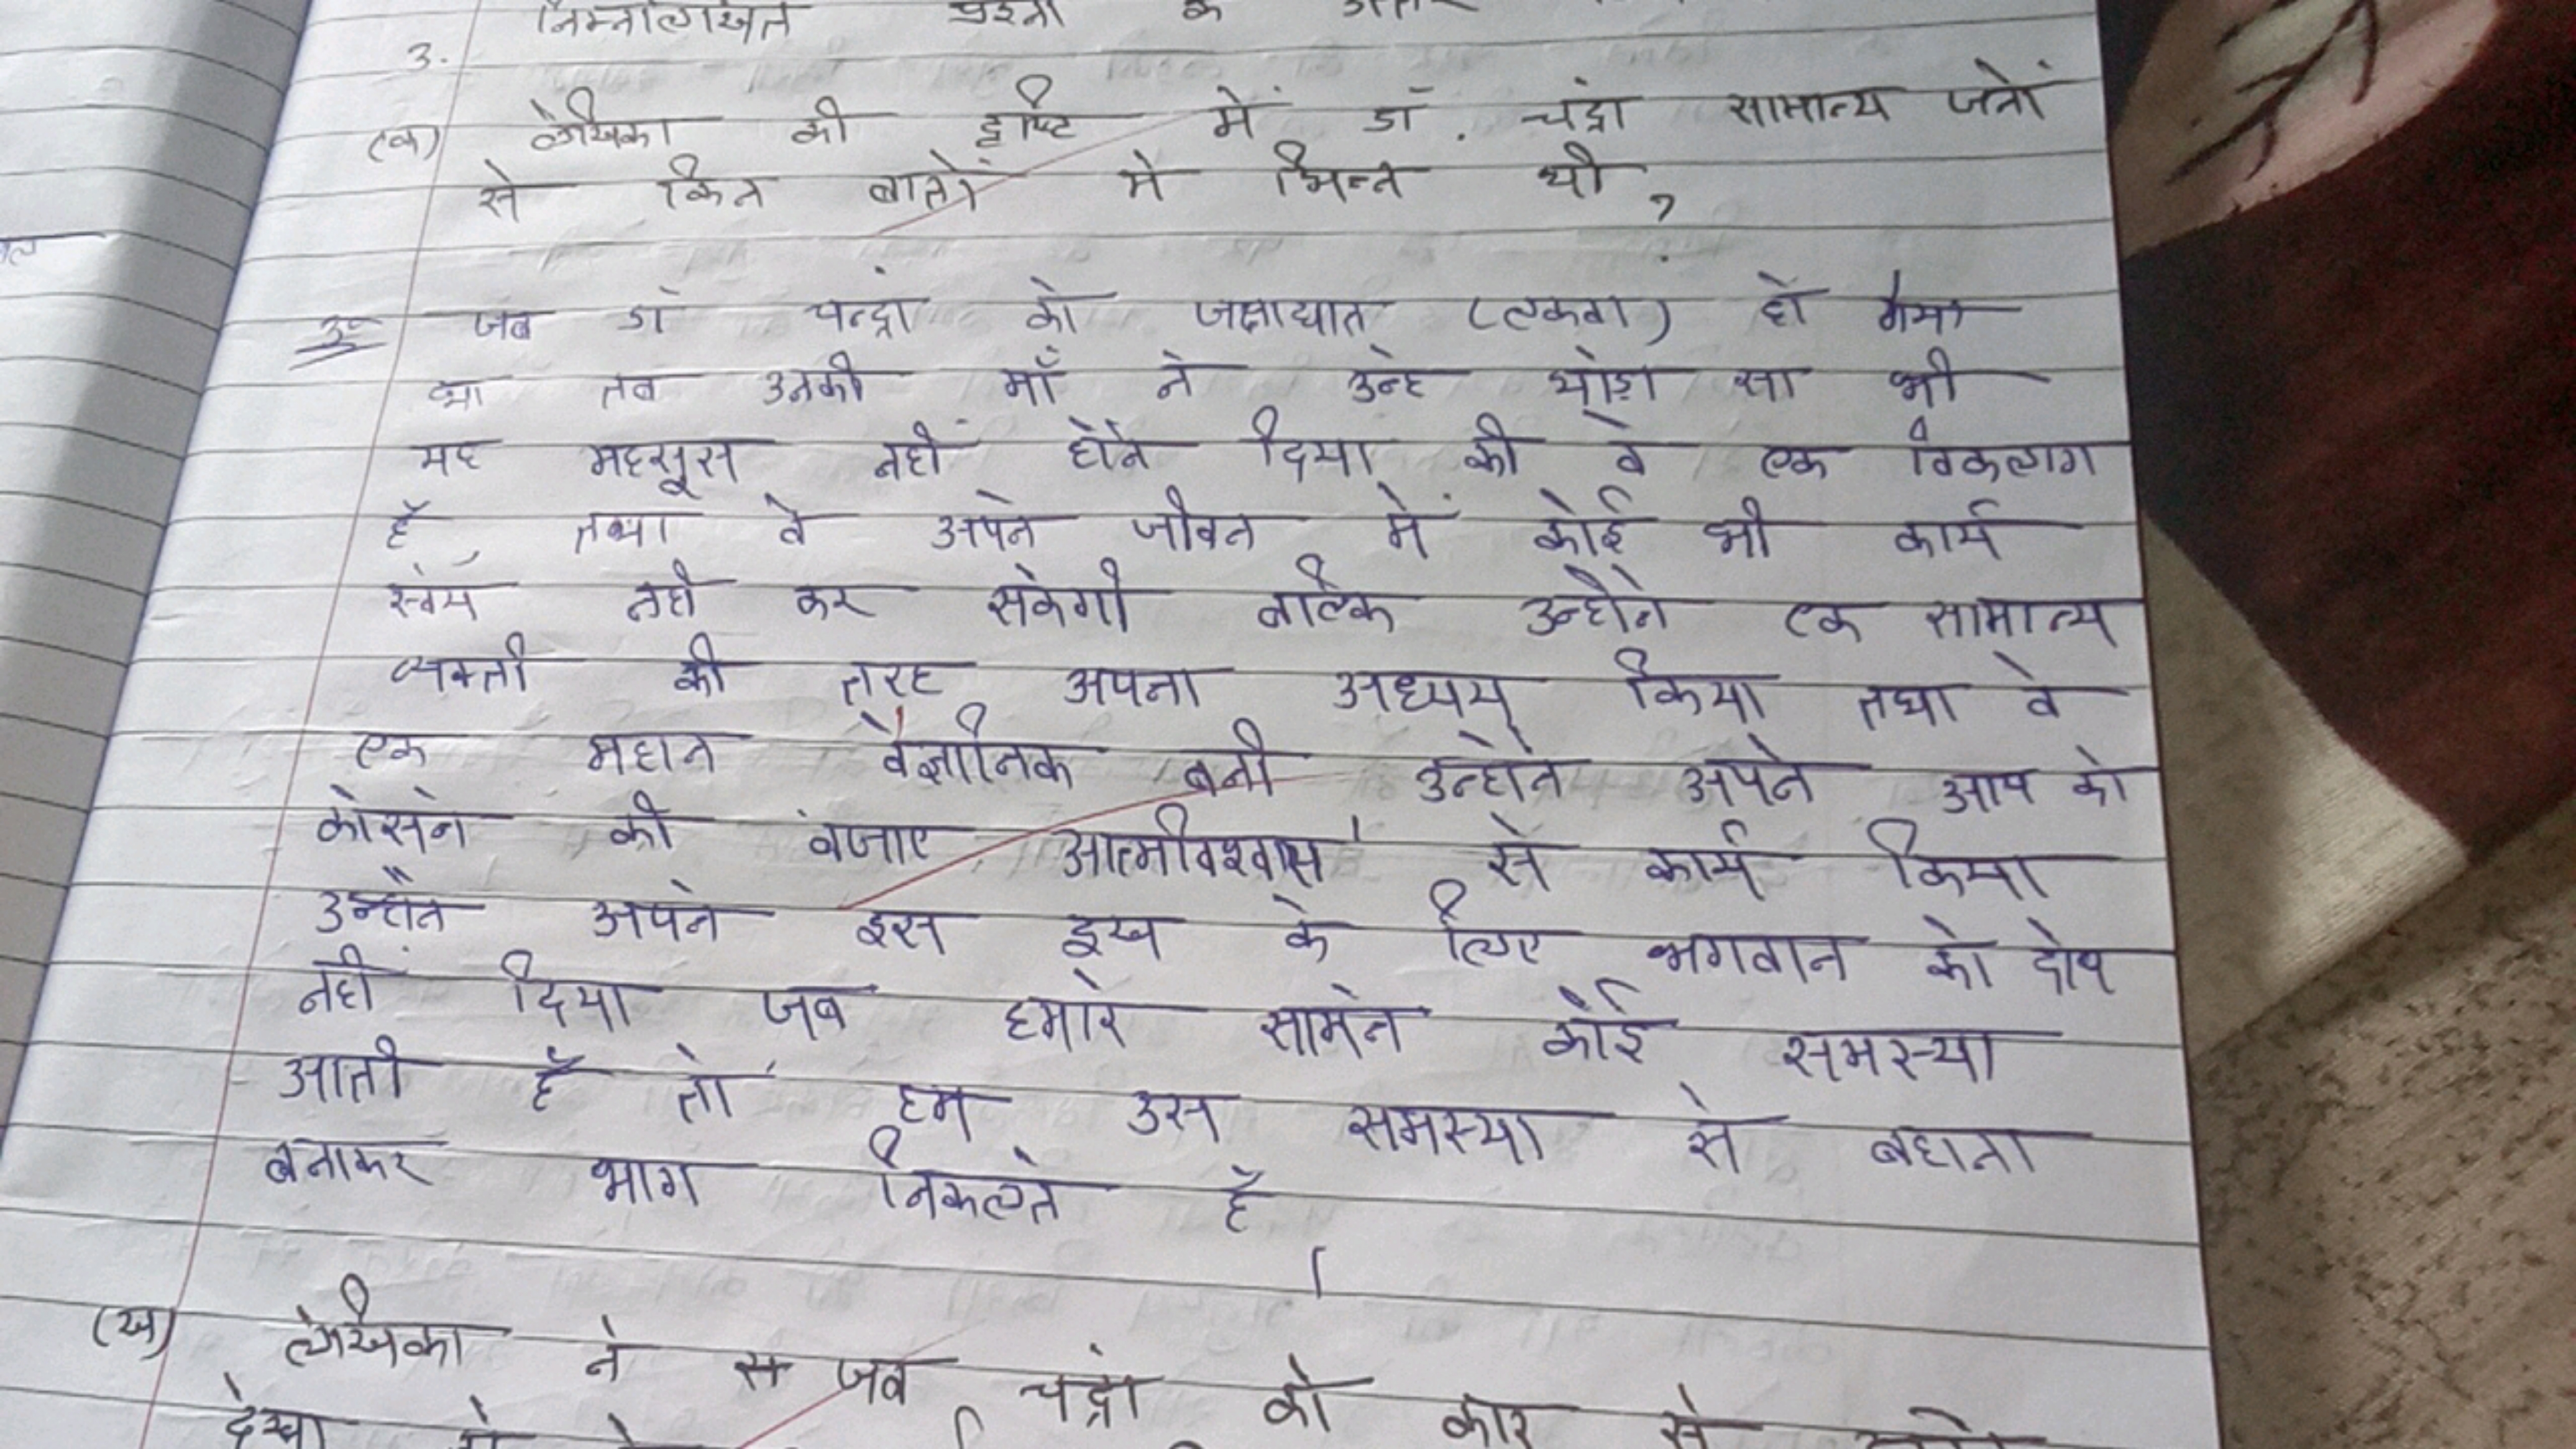 3. निम्नलिखित प्रश्नो के उत्तर
(क) लेखिका की दृष्टि में डॉ. चंद्रा सामान्य जनों
से किन बातों मे भिन्न थी ?
उ० जब डॉ चन्द्रां को पक्षाघात (लकवा) हो गया
था तब उनकी माँ ने उन्हे थोड़ा सा भी
यह महसूस नहीं होने दिया की वे एक विकलाग
है, तथा वे अपने जीवन में कोई भी कार्य
स्वंय नही कर सकेगी बल्कि उन्होने एक सामान्य
व्यक्ती की तरह अपना अध्यय् किया तथा वे
एक महान वैज्ञानिक बनी उन्होने अपने आप को
कोसने की बजाए आत्मविश्वास से कार्य किया
उन्होंने अपने इस दुख के लिए भगवान को दोष
नहीं दिया जब हमारे सामने कोई समस्या
आती है तो हम उस समस्या से बहाना
बनाकर भाग निकलते है
।
(ख) लेखिका ने जब चंद्रा को कार से
देखा